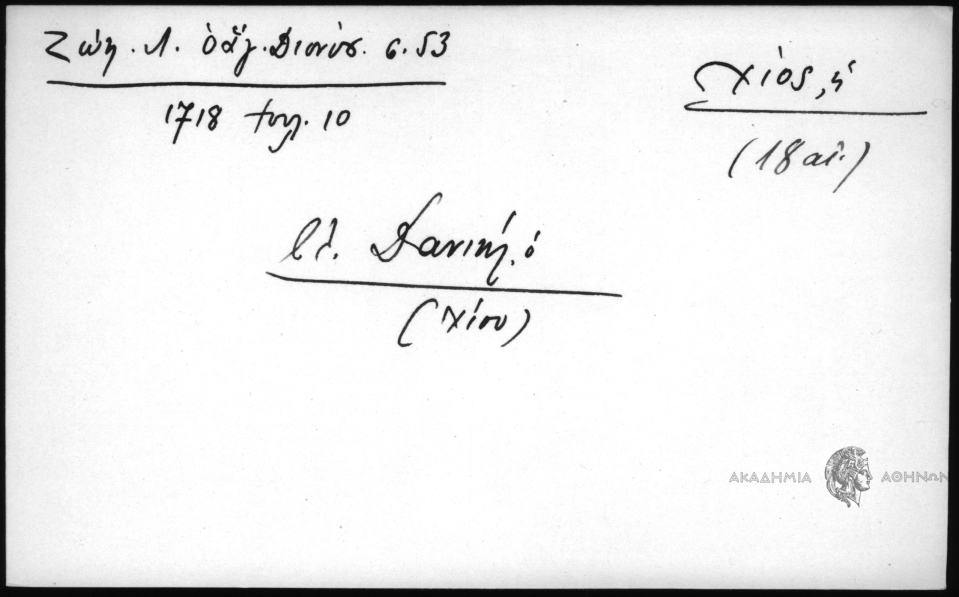 Ζώη. Λ. ὁ ἅγ. Διονύσ. σ. 53
1718 Ιουλ. 10
Χίος, ἡ
(18 αἰ.)
βλ. Δανιήλ, ὁ
(Χίου)
ΑΚΑΔΗΜΙΑ ΑΘΗΝΩΝ